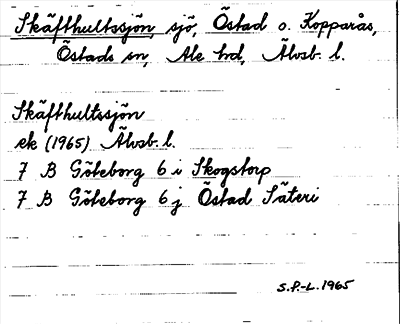 Skäfthultssjön, sjö, Östad o. Kopparås,
Östads sn, Ale hd, Älvsb. l.
Skäfthultssjön
ek (1965) Älvsb. l.
7 B Göteborg 6 i Skogstorp
7 B Göteborg 6 j Östad Säteri
S.P.-L. 1965